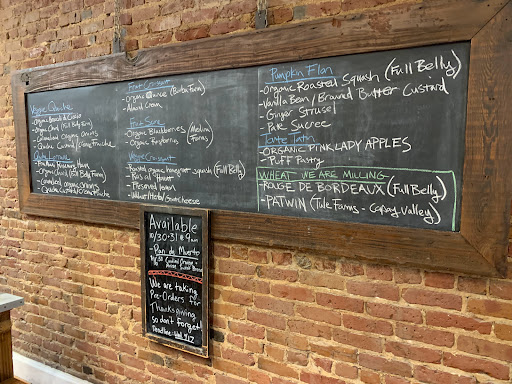 Veggie Quiche
- Organic
- Organic Chard (Full Belly Farm)
- Caramelized organic onions
- Quiche Custard w/ Crème Fraîche
Quiche Lorraine
Ham
- Organic Chard (Full Belly Farm)
- Caramelized organic onions
- Quiche Custard w/ Crème Fraîche
Fruit Croissant
- Organic Quince (Farm)
- Almond Cream
Fruit Scone
- Organic Blackberries
- Organic Raspberries
(Medina Farms)
Veggie Croissant
- Roasted organic honeynut squash (Full Belly)
- Preserved lemon
Goat Cheese
Pumpkin Flan
- Organic Roasted Squash (Full Belly)
- Vanilla Bean / Browned Butter Custard
- Ginger Strusel
- Pate Sucree
Tarte Tatin
- ORGANIC PINK LADY APPLES
- PUFF Pastry
WHEAT WE ARE MILLING
- ROUGE DE BORDEAUX (Full Belly)
- PATWIN (Tule Farms - Capay Valley)
Available
10/30-31 @ 9am
- Pan de Muerto
Candied Orange +
Anise Sweet Bread
We are taking
Pre-Orders for
Thanksgiving
so don't forget!